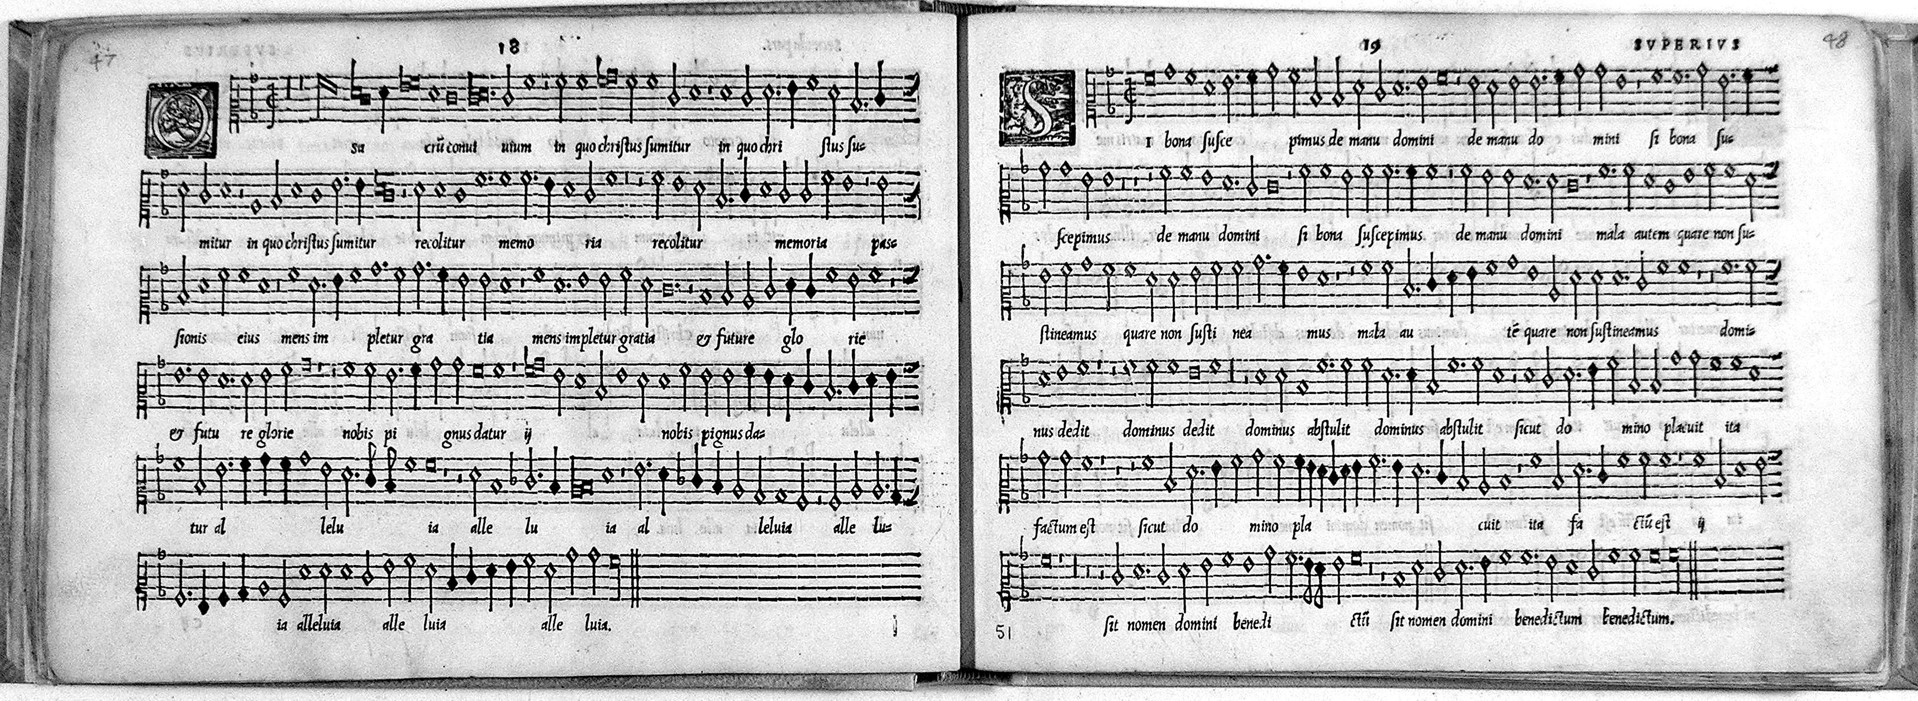 47
18
O
sa crū convi vium in quo christus sumitur in quo chri stus su=
mitur in quo christus sumitur recolitur memo ria recolitur memoria pas=
sionis eius mens im pletur gra tia mens impletur gratia & future glo rie
& futu re glorie nobis pi gnus datur ij nobis pignus da=
tur al lelu ia alle lu ia al leluia alle lu=
ia alleluia alle luia alle luia.
19
SVPERIVS
48
S
I bona susce pimus de manu domini de manu do mini si bona su=
scepimus de manu domini si bona suscepimus de manu domini mala autem quare non su=
stineamus quare non susti nea mus mala au tē quare non sustineamus domi=
nus dedit dominus dedit dominus abstulit dominus abstulit sicut do mino placuit ita
factum est sicut do mino pla cuit ita fa ctū est ij
sit nomen domini benedi ctū sit nomen domini benedictum benedictum.
51